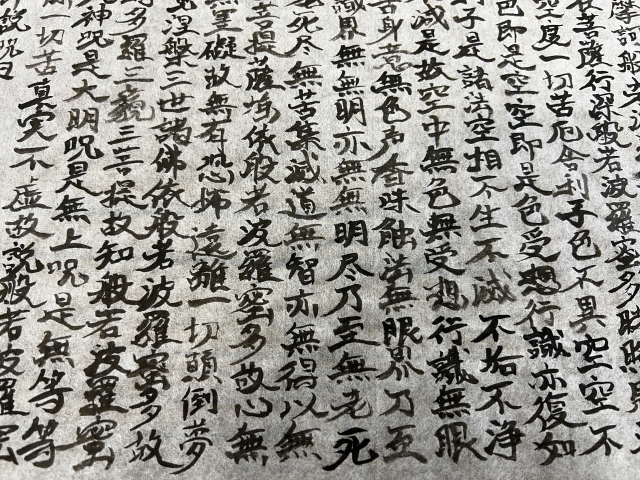 摩訶般若波
菩薩行深般若波羅蜜多時照見
空度一切苦厄舎利子色不異空空不
色即是空空即是色受想行識亦復如
子是諸法空相不生不滅不垢不浄
減是故空中無色無受想行識無眼
舌身意無色声香味蝕法無眼界乃至
識界無無明亦無無明尽乃至無老死
老死尽無苦集滅道無智亦無得以無
菩提薩埵依般若波羅蜜多故心無
無罣礙故無有恐怖遠離一切顛倒夢
究涅槃三世諸佛依般若波羅蜜多故
多羅三藐三菩提故知般若波羅蜜
神呪是大明呪是無上呪是無等等
一切苦真実不虚故説般若波羅蜜
説呪曰